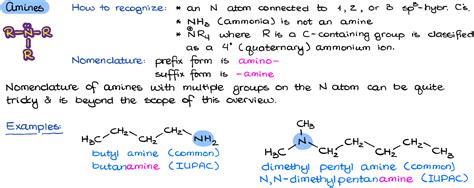 Amines
How to recognize: * an N atom connected to 1, 2, or 3 sp³-hybr. Cs.
* NH₃ (ammonia) is not an amine
* ⊕NR₄ where R is a C-containing group is classified
as a 4° (quaternary) ammonium ion.
R-N̈-R
R
Nomenclature: prefix form is amino-
suffix form is -amine
Nomenclature of amines with multiple groups on the N atom can be quite
tricky & is beyond the scope of this overview.
Examples:
H₃C CH₂ CH₂ CH₂ NH₂
butyl amine (common)
butanamine (IUPAC)
CH₃
H₃C N CH₂ CH₂ CH₂ CH₂ CH₃
dimethyl pentyl amine (common)
N,N-dimethylpentanamine (IUPAC)